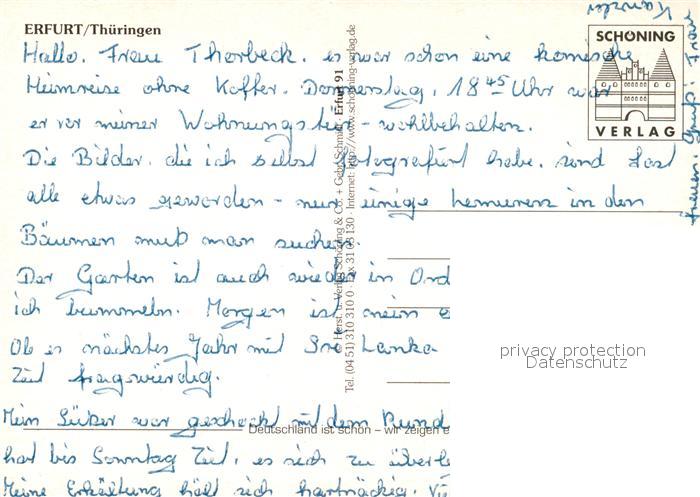 ERFURT/Thüringen
Hallo, Frau Thorbeck, es war schon eine komische
Heimreise ohne Koffer. Donnerstag, 18 45 Uhr war
er vor meiner Wohnungstür - wohlbehalten.
Die Bilder, die ich selbst fotografiert habe, sind fast
alle etwas geworden - nur einige Lemuren in den
Bäumen muß man suchen.
Der Garten ist auch wieder in Ord
ich bummeln. Morgen ist mein e
Ob es nächstes Jahr mit Sri Lanka
Ziel fragwürdig.
Mein war gescheckt mit dem Bund
hat bis Sonntag Zeit, es sich zu überl
Meine Erkältung hält sich hartnäckig. Vi
SCHÖNING
VERLAG
© Horst. u. Verlag Schöning & Co. + Gebr. Schmidt Erfurt 91
Tel. (04 51) 310 310 0 · Fax 31 03 130 · Internet: http://www.schoening-verlag.de
Deutschland ist schön – wir zeigen e
privacy protection
Datenschutz